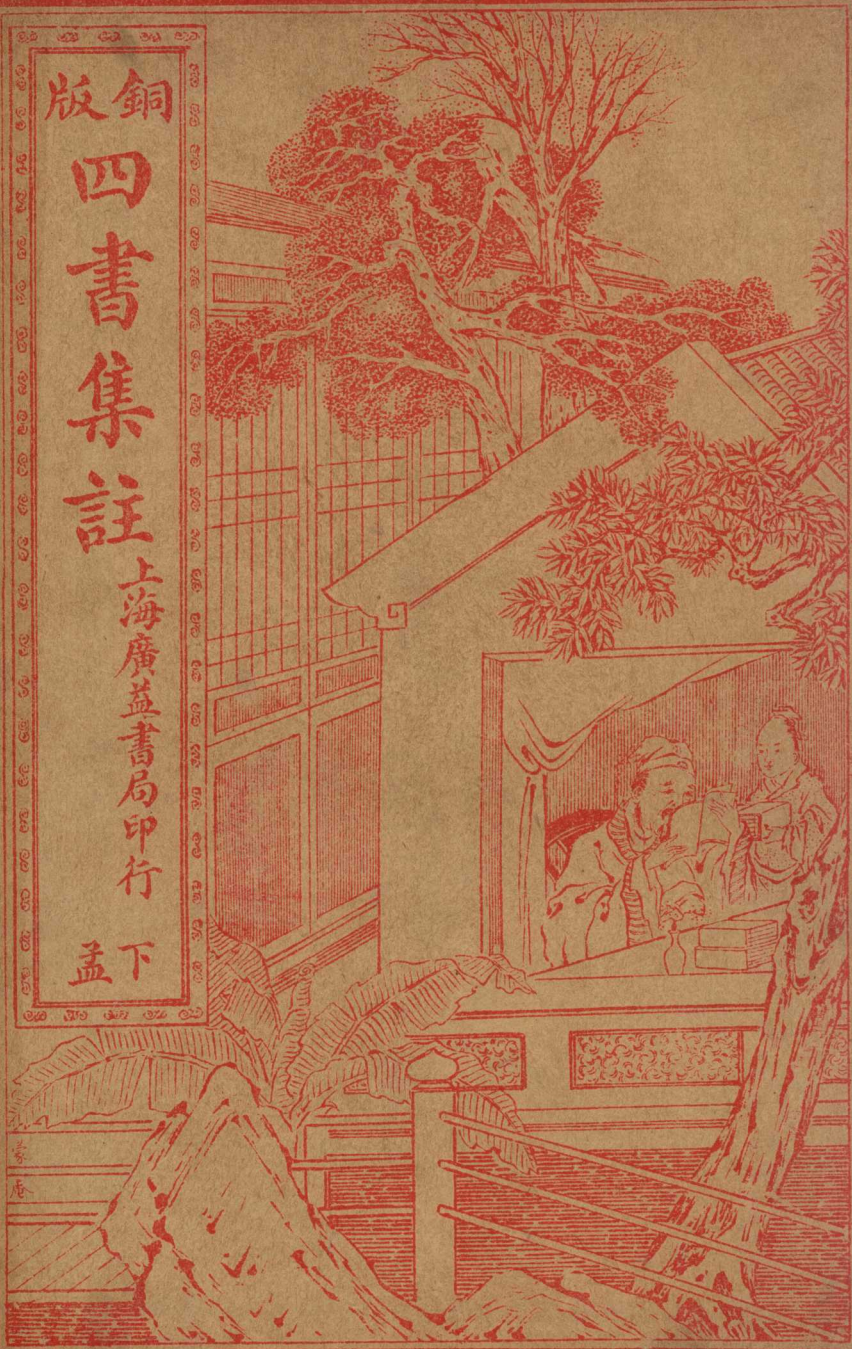 銅版
四書集註
上海廣益書局印行
下孟